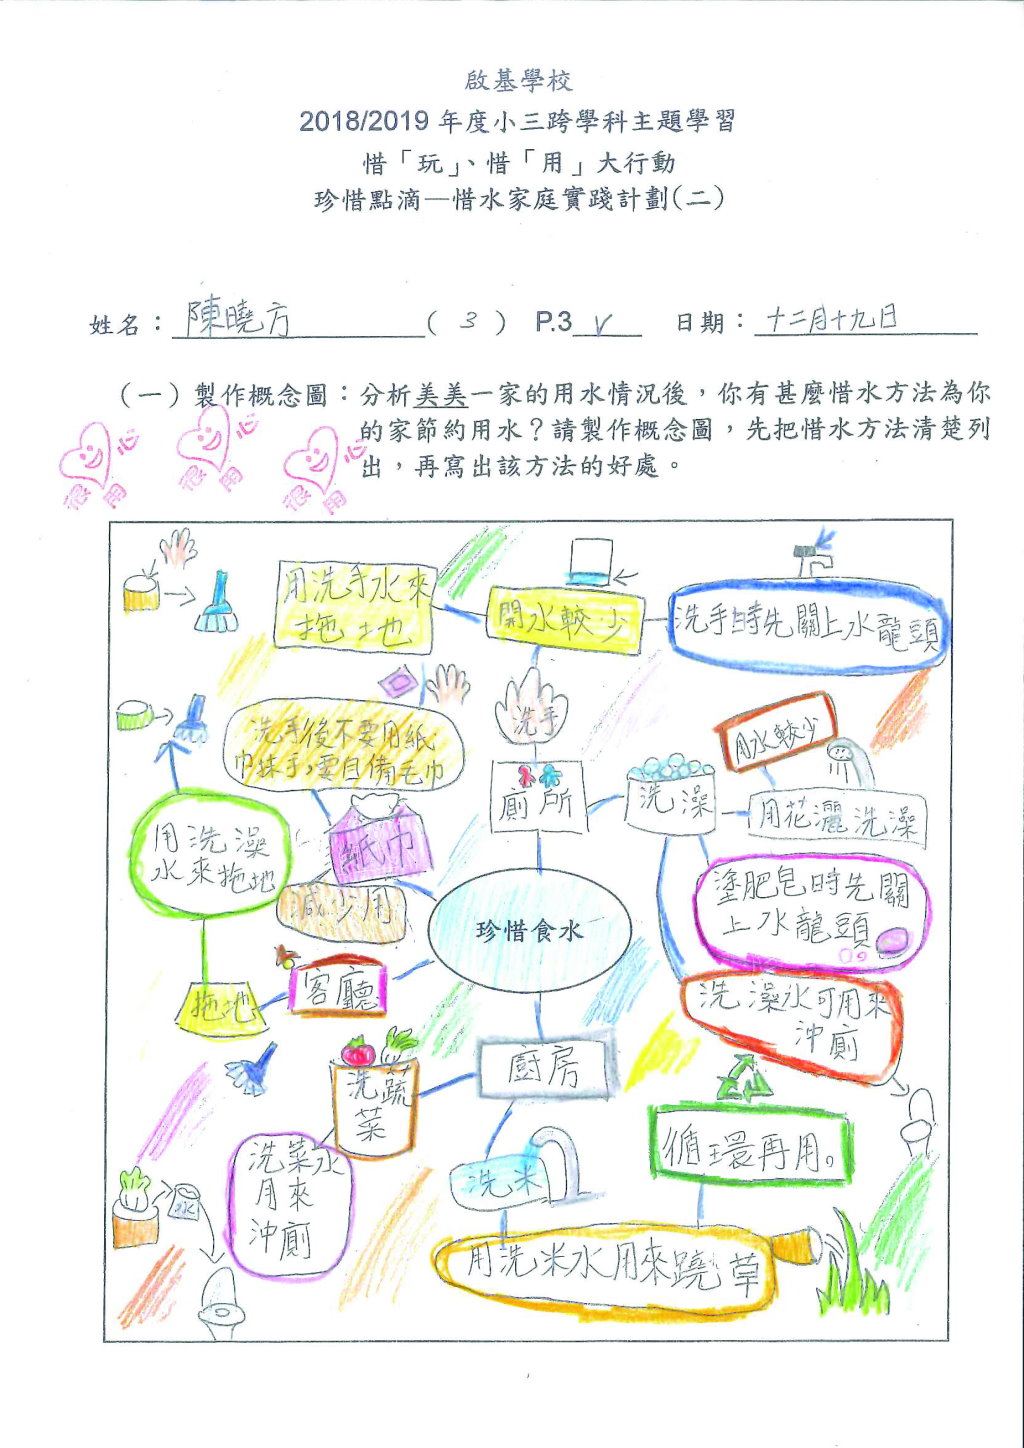 啟基學校
2018/2019 年度小三跨學科主題學習
惜「玩」、惜「用」大行動
珍惜點滴—惜水家庭實踐計劃(二)
姓名：陳曉方 ( 3 ) P.3 V 日期：十二月十九日
(一) 製作概念圖：分析美美一家的用水情況後，你有甚麼惜水方法為你
的家節約用水？請製作概念圖，先把惜水方法清楚列
出，再寫出該方法的好處。
很用心
很用心
很用心
用洗手水來
拖地
開水較少
洗手時先關上水龍頭
洗手
洗手後不要用紙
巾抹手，要自備毛巾
用水較少
廁所
洗澡
用花灑洗澡
用洗澡
水來拖地
紙巾
減少用
塗肥皂時先關
上水龍頭
珍惜食水
客廳
拖地
洗澡水可用來
沖廁
廚房
洗蔬
菜
循環再用。
洗菜水
用來
沖廁
洗米
用洗米水用來蹺草